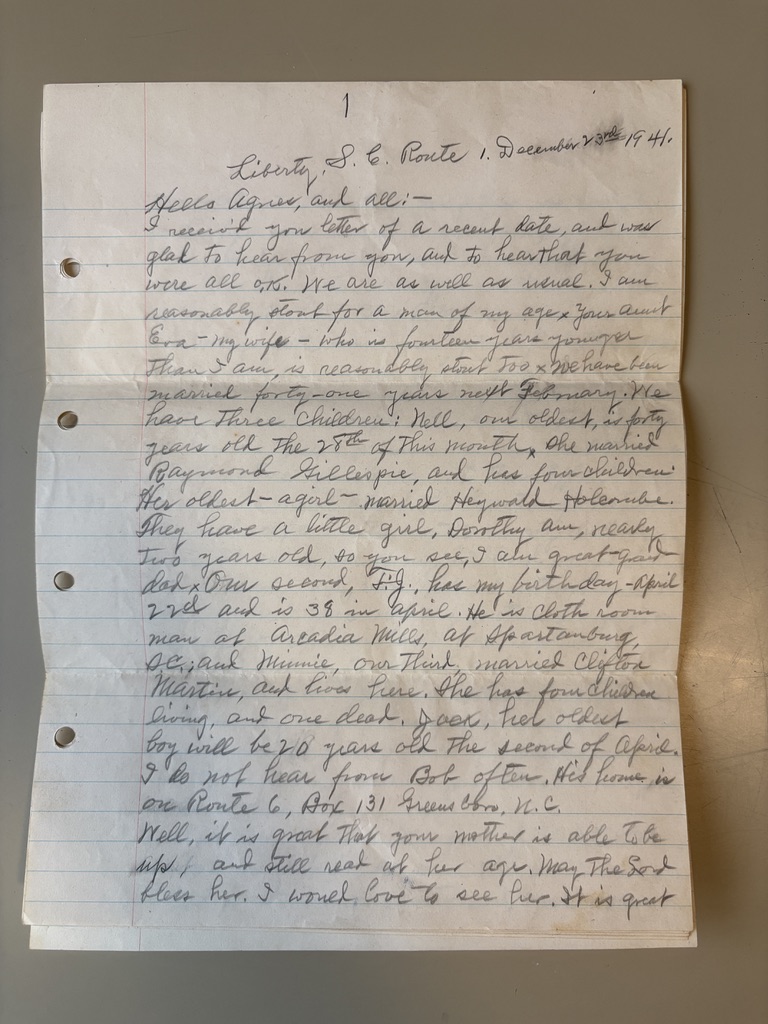 1
Liberty, S. C. Route 1. December 23rd 1941.
Hello Agnes, and all:—
I receiv'd you letter of a recent date, and was
glad to hear from you, and to hear that you
were all O.K. We are as well as usual. I am
reasonably stout for a man of my age x Your aunt
Eva — my wife — who is fourteen years younger
than I am, is reasonably stout too x We have been
married forty-one years next February. We
have three children: Nell, our oldest, is forty
years old the 28th of this month, she married
Raymond Gillespie, and has four children.
Her oldest — a girl — married Heyward Holcombe.
They have a little girl, Dorothy Ann, nearly
two years old, so you see, I am great-grand
dad x Our second, T.J., has my birthday — April
22nd and is 38 in April. He is cloth room
man at Arcadia Mills, at Spartanburg,
S.C.; and Minnie, our third, married Clifton
Martin, and lives here. She has four children
living, and one dead. Jack, her oldest
boy will be 20 years old the second of April.
I do not hear from Bob often. His home is
on Route 6, Box 131 Greensboro, N.C.
Well, it is great that your mother is able to be
up, and still read at her age. May the Lord
bless her. I would love to see her. It is great